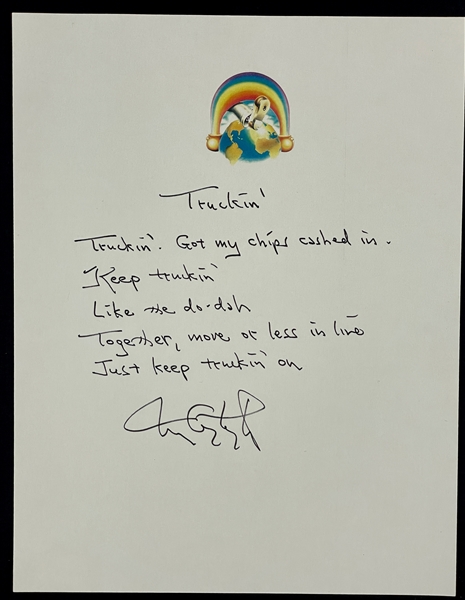 Truckin'
Truckin'. Got my chips cashed in.
Keep truckin'
Like the do-dah
Together, more or less in line
Just keep truckin' on